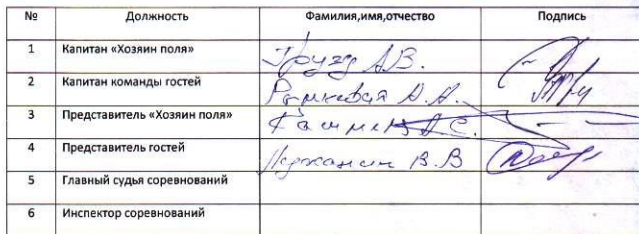 № Должность Фамилия,имя,отчество Подпись
1 Капитан «Хозяин поля» А.В.
2 Капитан команды гостей
3 Представитель «Хозяин поля»
4 Представитель гостей В.В
5 Главный судья соревнований
6 Инспектор соревнований